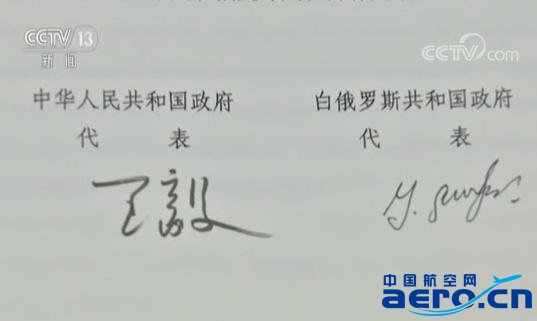 CCTV 13
新闻
CCTV.com
中华人民共和国政府
代 表
王毅
白俄罗斯共和国政府
代 表
中国航空网
aero.cn